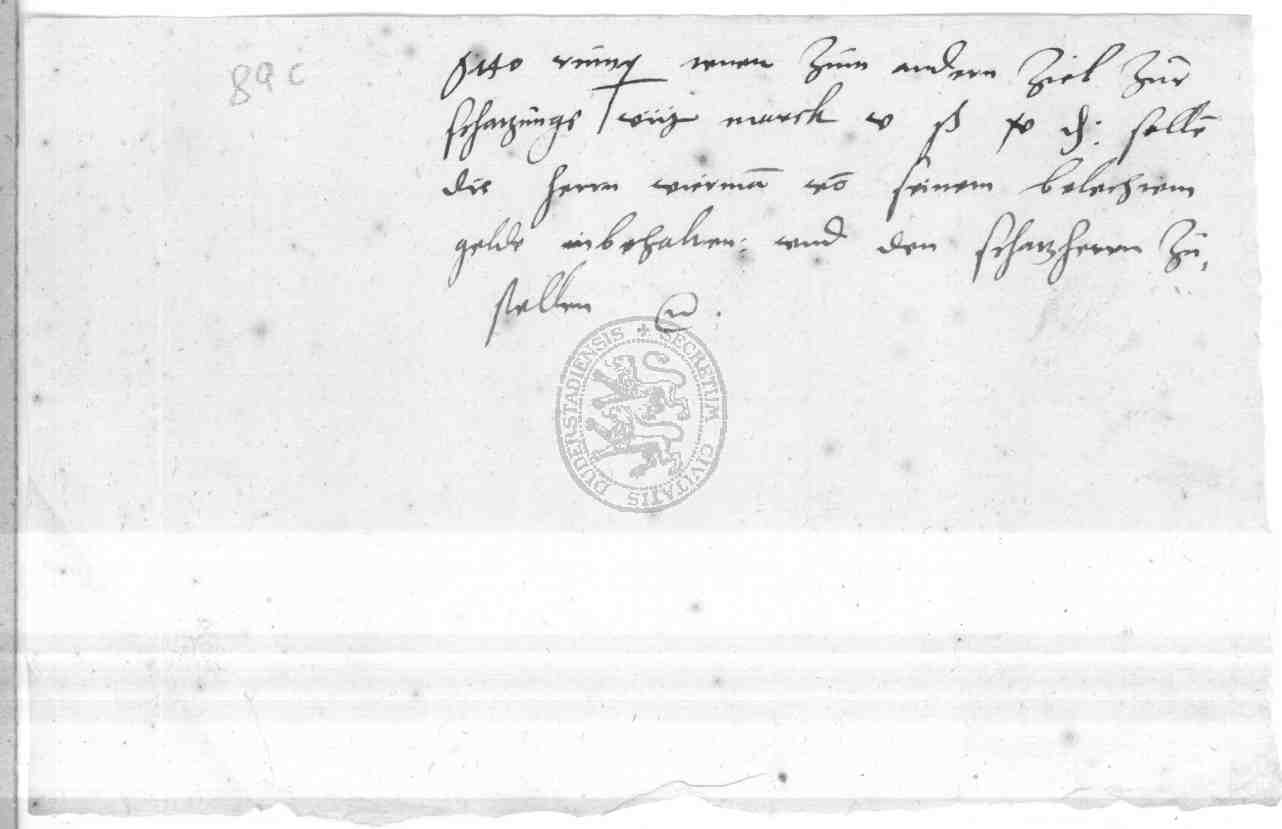 89 c
Otto zum andern Ziel Zur
schatzungs marck v ß xv ₰: sollē
die herrn viermā vō seinem
gelde inbehalten: vnd den schatzherrn Zu,
stellen
SECRETUM CIVITATIS DUDERSTADIENSIS